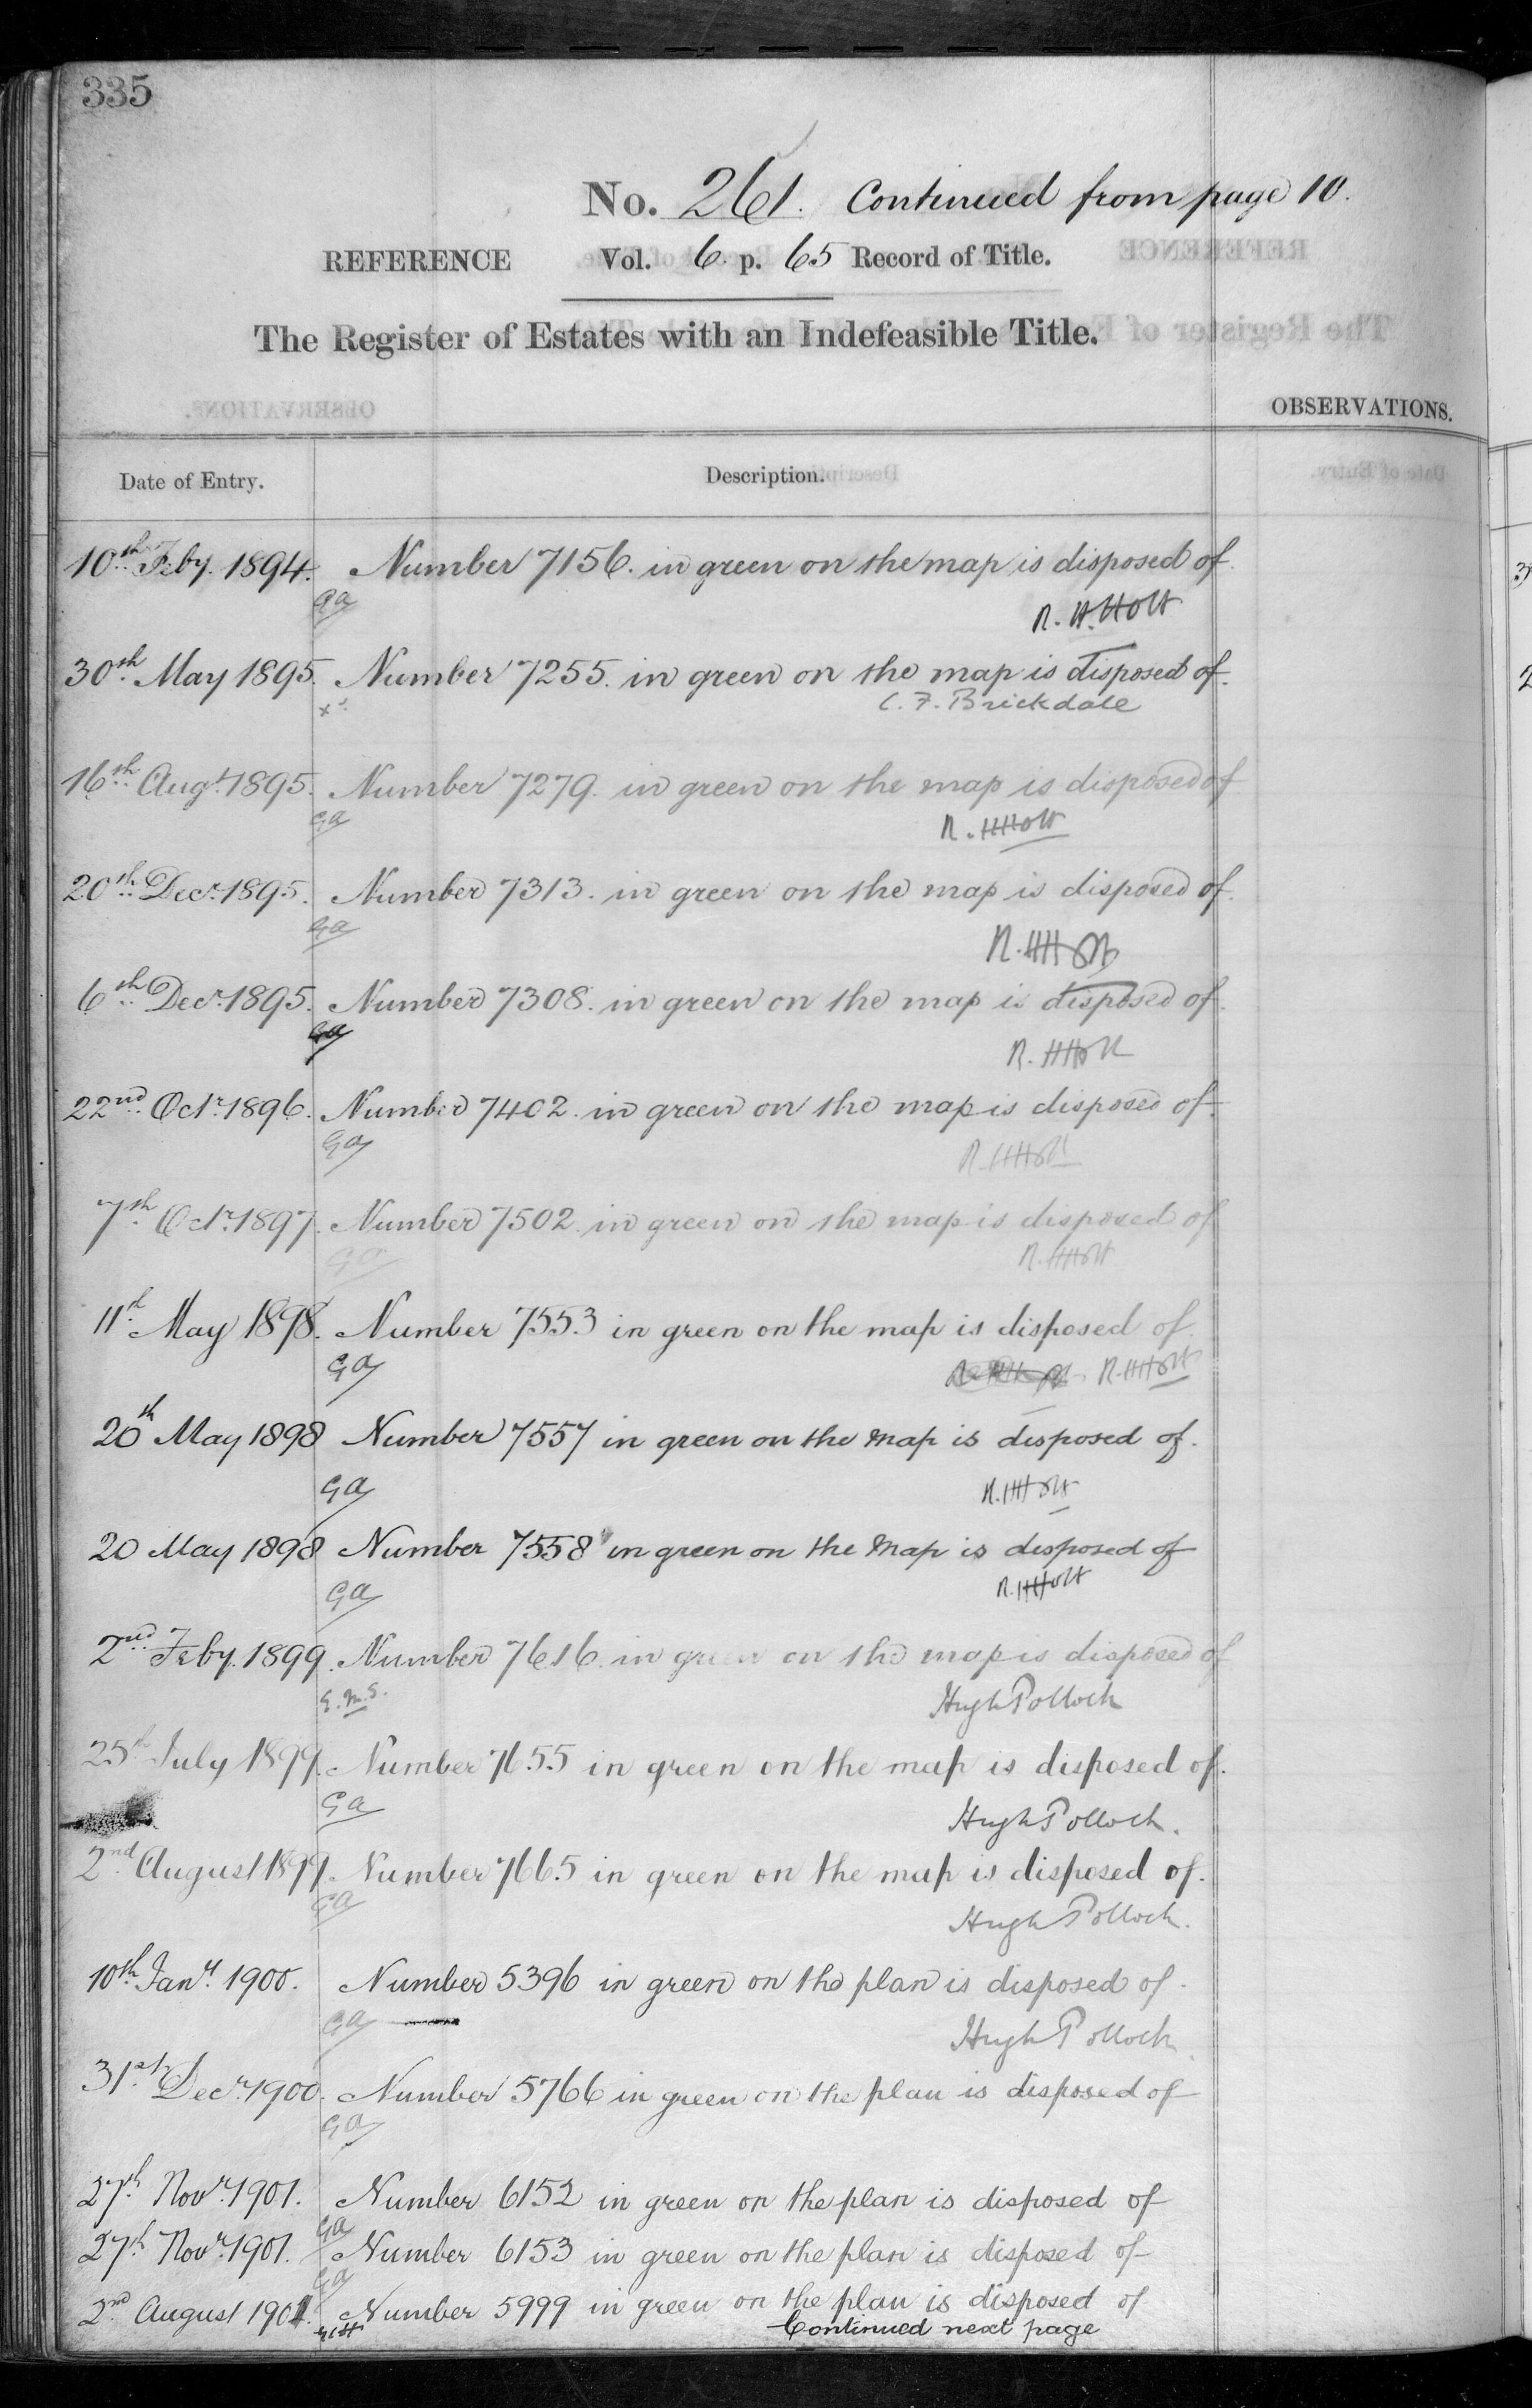 335
No. 261. Continued from page 10.
REFERENCE Vol. 6. p. 65 Record of Title.
The Register of Estates with an Indefeasible Title.
OBSERVATIONS.
Date of Entry. Description.
10th Feby. 1894. Number 7156. in green on the map is disposed of.
GA R. H. Holt
30th May 1895. Number 7255. in green on the map is disposed of.
C. F. Brickdale
16th Augt. 1895. Number 7279. in green on the map is disposed of
GA R. H Holt
20th Decr. 1895. Number 7313. in green on the map is disposed of.
GA R. H Holt
6th Decr. 1895. Number 7308. in green on the map is disposed of.
GA R. H Holt
22nd Octr. 1896. Number 7402. in green on the map is disposed of.
GA R. H Holt
7th Octr. 1897. Number 7502. in green on the map is disposed of
GA R. H Holt
11th May 1898. Number 7553 in green on the map is disposed of.
GA R. H Holt
20th May 1898 Number 7557 in green on the map is disposed of.
GA R. H Holt
20 May 1898 Number 7558 in green on the Map is disposed of
GA R. H Holt
2nd Feby. 1899. Number 7616. in green on the map is disposed of
E.M.S. Hugh Pollock
25th July 1899. Number 7655 in green on the map is disposed of.
GA Hugh Pollock.
2nd August 1899. Number 7665 in green on the map is disposed of.
GA Hugh Pollock.
10th Jany. 1900. Number 5396 in green on the plan is disposed of.
GA Hugh Pollock.
31st Decr. 1900. Number 5766 in green on the plan is disposed of
GA
27th Novr. 1901. Number 6152 in green on the plan is disposed of
GA
27th Novr. 1901. Number 6153 in green on the plan is disposed of
GA
2nd August 1901. Number 5999 in green on the plan is disposed of
Continued next page